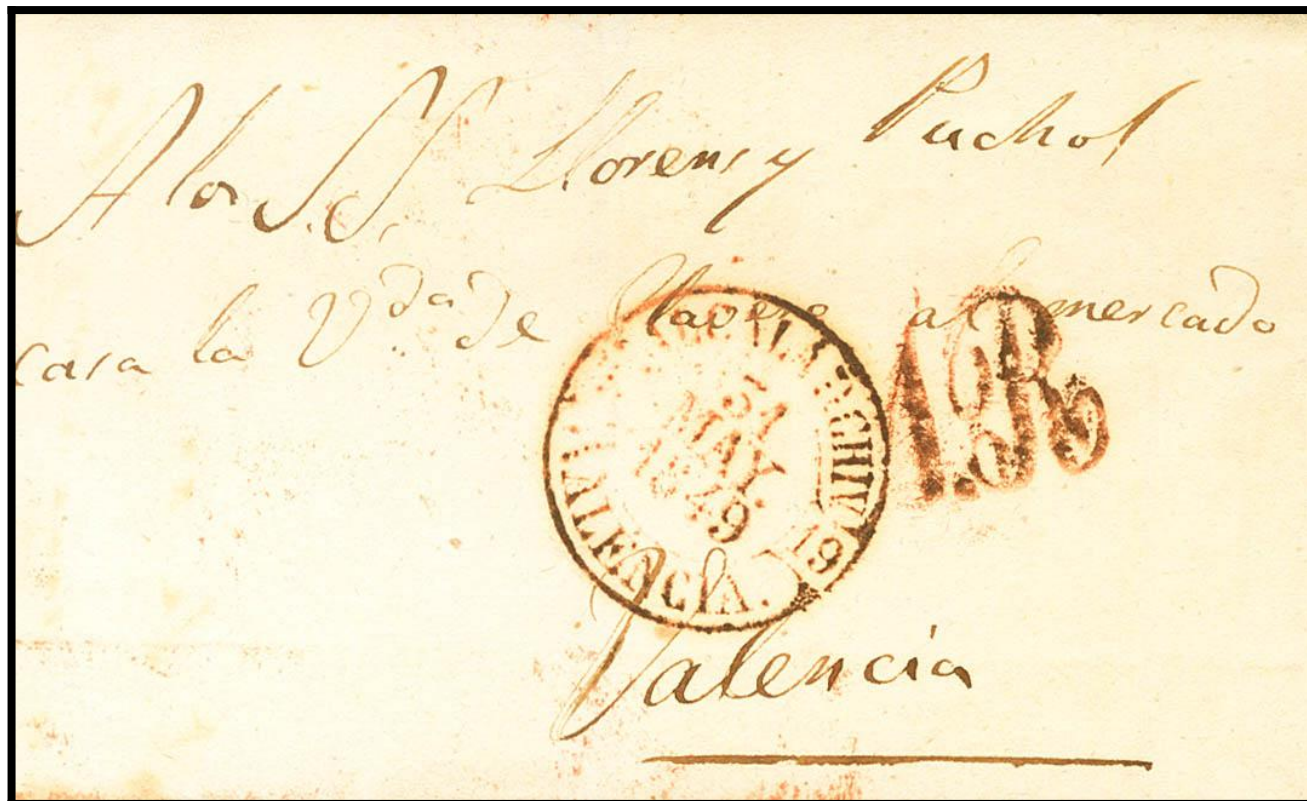 A los S.S. Llorens y Puchol
casa la V.da de Clavero al mercado
31
MAY.
1849
VALENCIA. 19
1.R
Valencia